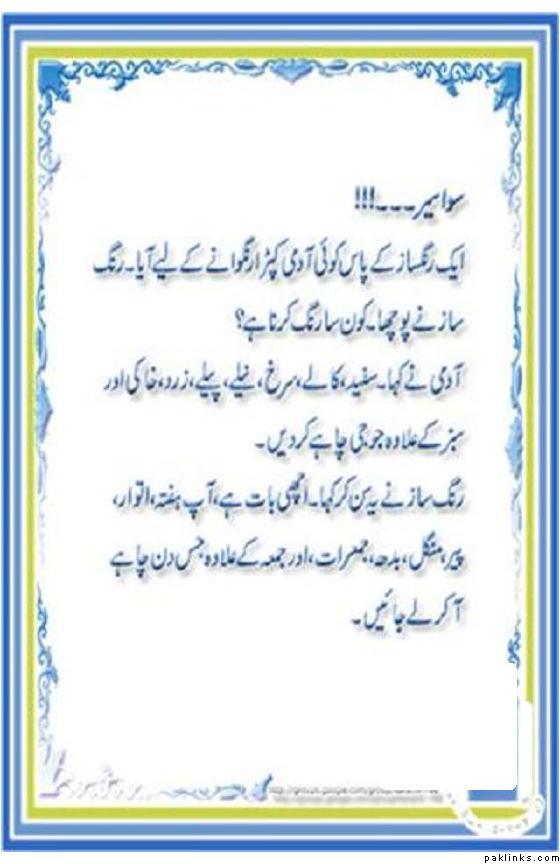 سوا سیر۔۔۔!!!
ایک رنگساز کے پاس کوئی آدمی کپڑا رنگوانے کے لیے آیا۔رنگ
ساز نے پوچھا۔کون سا رنگ کرنا ہے؟
آدمی نے کہا۔سفید،کالے،سرخ،نیلے،پیلے،زرد،خاکی اور
سبز کے علاوہ جو جی چاہے کر دیں۔
رنگ ساز نے یہ سن کر کہا۔اچھی بات ہے،آپ ہفتہ،اتوار،
پیر،منگل،بدھ،جمعرات،اور جمعہ کے علاوہ جس دن چاہے
آ کر لے جائیں۔
paklinks.com